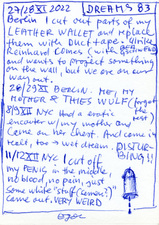 27/28 XI 2022 DREAMS 83
Berlin I cut out parts of my
LEATHER WALLET and replace
them with ductape. - While
Reinhard comes with
and wants to project something
on the wall, but we are on our
way out.
28/29 XI BERLIN. Me, my
MOTHER & THIES WULF (forgot
8/9 XII NYC Had a erotic rest)
encounter w/ my mother and
came on her chest. And came in
real, too → wet dream. DISTUR-
BING!!
11/12 XII NYC I cut off
my PENIS in the middle,
no blood, no pain, just
some white "stuff (cement?)"
came out. VERY WEIRD